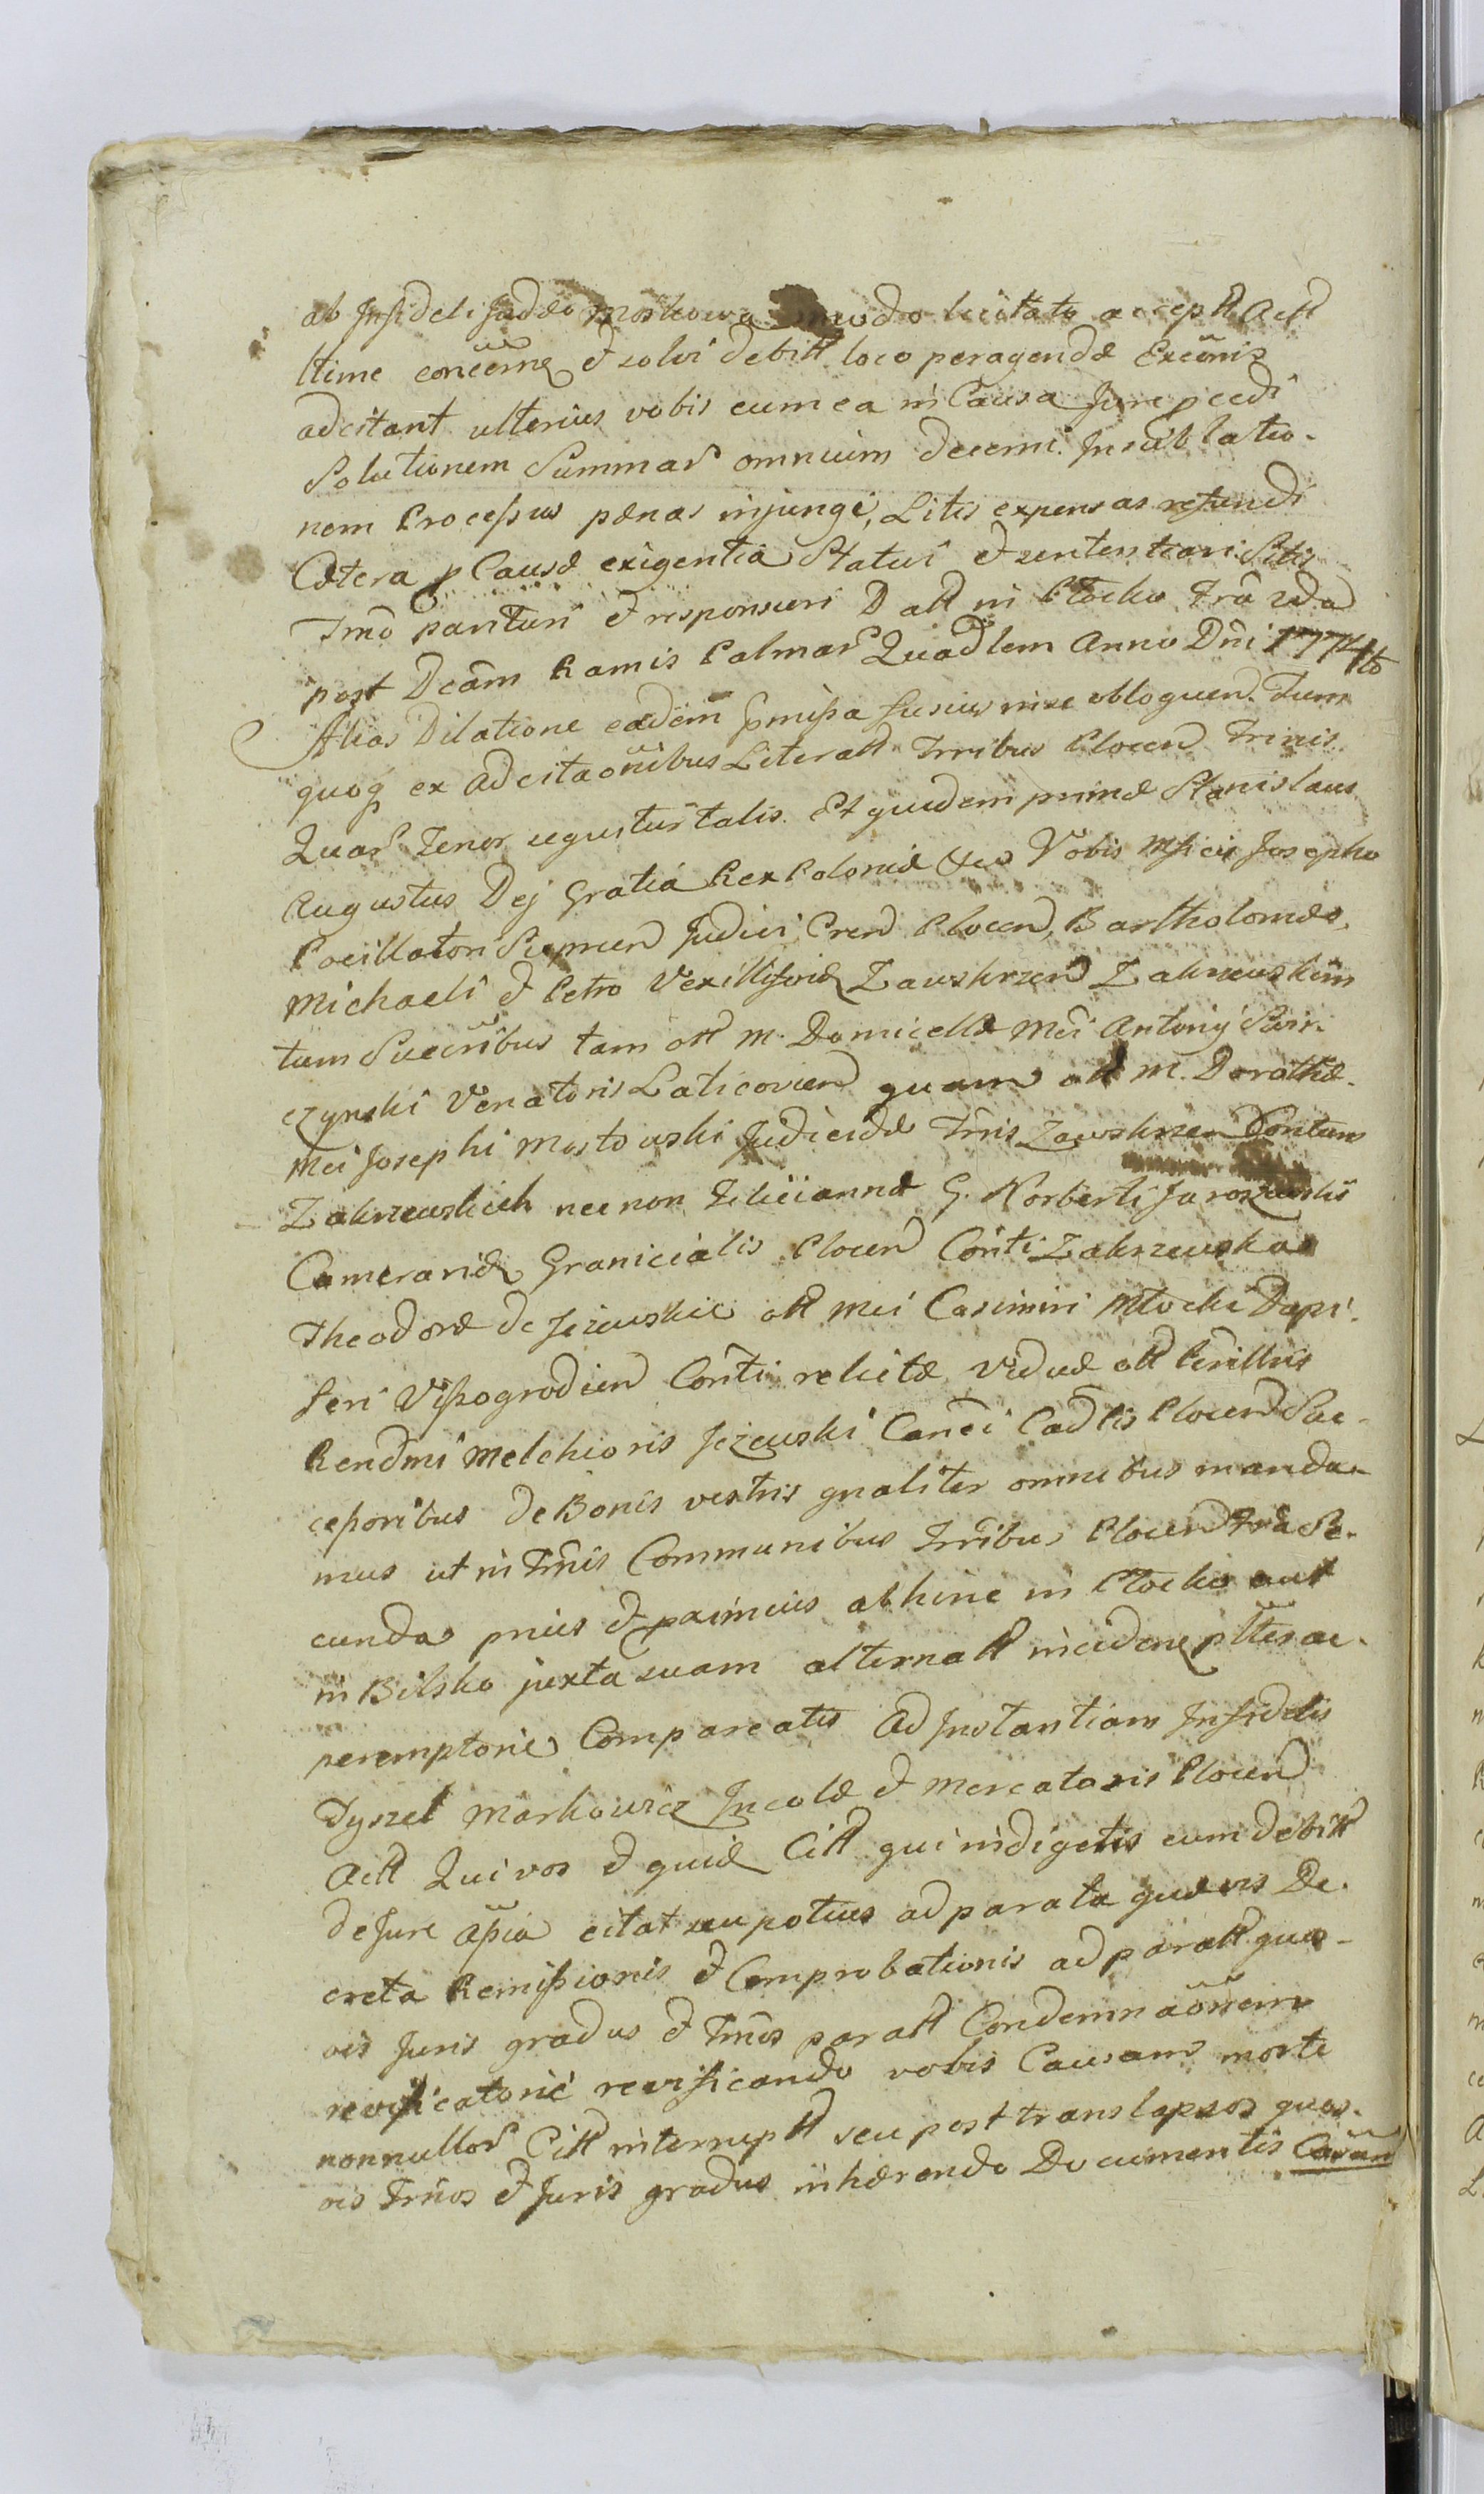 ab Infideli Judæo Moskowa modo licitato accept Actt
ltime concerne et solvi debitt loco peragendæ Exĉonis
adcitant ulterius vobis cum ea in Causa Jure pcedi
Solutionem Summar omnium decerni. Insublatio-
nem Processus pænas injungi, Litis expensas refundi
Cætera p Causæ exigentia Statui et sententiari. Sitis
Tmo parituri et responsuri Datt in Płocku Fria 2da
post Dcam Ramis Palmar Quadlem Anno Dni 1774to
Alias Dilatione eadem pmissa fusius inse obloquen. Tum
quoq ex adcitaonibus Literatt Trribus Plocen Trinis
Quar Tenor sequitur talis. Et quidem primæ Stanislaus
Augustus Dej Gratia Rex Poloniæ &ca Vobis Mficis Josepho
Pocillatori Sieprcen Judici Cren Plocen, Bartholomæo,
Michaeli et Petro Vexilliferid Zawskrzen Zakrzewskim
tum Succribus tam ott M. Domicellæ Mci Antonij Swin-
czynski Venatoris Laticovien quam ott M. Dorothæ
Mci Josephi Mostowski Judicidæ Trris Zawskrzen Contum
Zakrzewskich nec non Feliciannæ G. Norberti Jaroszewski
Camerarid Granicialis Plocen Conti Zakrzewska
Theodoræ de Jezewskie ott Mci Casimiri Mlocki Dapi-
feri Vissogrodien Conti relictæ Viduæ ott Perillris
Rendmi Melchioris Jezewski Canci Cadlis Plocen Suc-
cessoribus de Bonis vestris gnaliter omnibus manda-
mus ut in Tmis Communibus Trribus Plocen Fria Se-
cunda prius et pximius abhinc in Płocku aut
in Bilsko juxta suam alternatt inciden plter ac
peremptorie Compareatis Ad Instantiam Infidelis
Dyszel Markowicz Incolæ et Mercatoris Plocen
Actt Qui vos et quid Citt qui indigetis cum debitt
de Jure apia citat seu potius ad parata quævis De-
creta Remissionis et Comprobationis ad paratt quos-
vis Juris gradus et Tmos paratt Condemnaonem
revificatorie revificando vobis Causam morte
nonnullor Citt interruptt seu post translapsos quos-
vis Tmos et Juris gradus inhærendo Documentis Causan